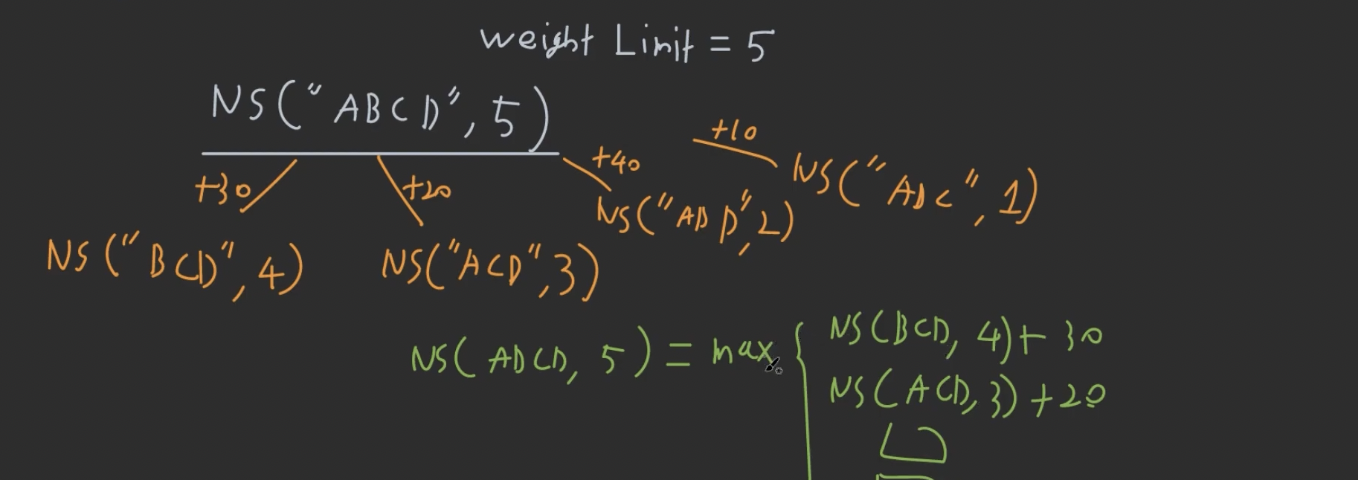 weight Limit = 5
NS("ABCD", 5)
+30
+20
+40
+10
NS("BCD", 4)
NS("ACD", 3)
NS("ABD", 2)
NS("ABC", 1)
NS(ABCD, 5) = max {
NS(BCD, 4) + 30
NS(ACD, 3) + 20